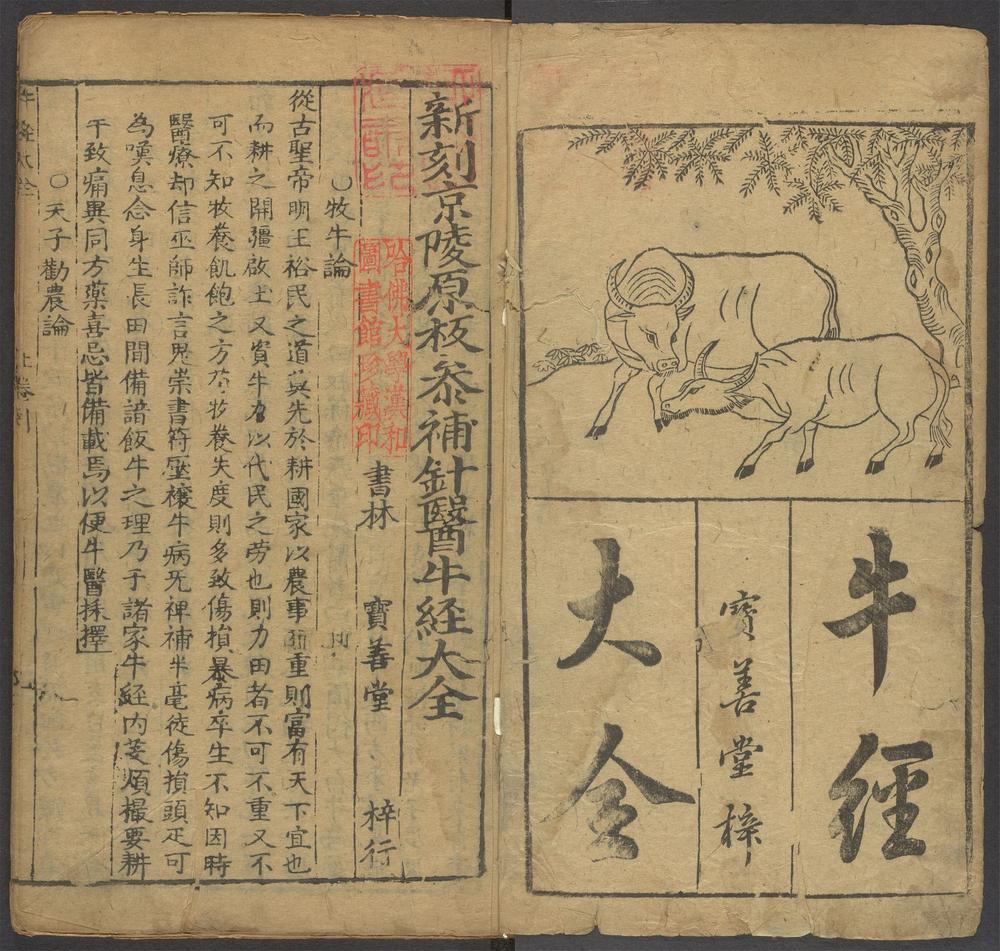 牛經
寶善堂梓
大全
新刻京陵原板參補針醫牛經大全
書林 寶善堂 梓行
哈佛大學漢和
圖書館珍藏印
○牧牛論
從古聖帝明王裕民之道莫先於耕國家以農事為重則富有天下宜也
而耕之開疆啟土又資牛力以代民之劳也則力田者不可不重又不
可不知牧養飢飽之方苐牧養失度則多致傷損暴病卒生不知因時
醫療却信巫師詐言鬼祟書符壓禳牛病旡裨補半毫徒傷損頭疋可
為嘆息念身生長田間備諳飯牛之理乃于諸家牛經內芟煩撮要耕
干致痛異同方藥喜忌皆備載焉以便牛醫採擇
○天子勸農論
牛經大全
上卷